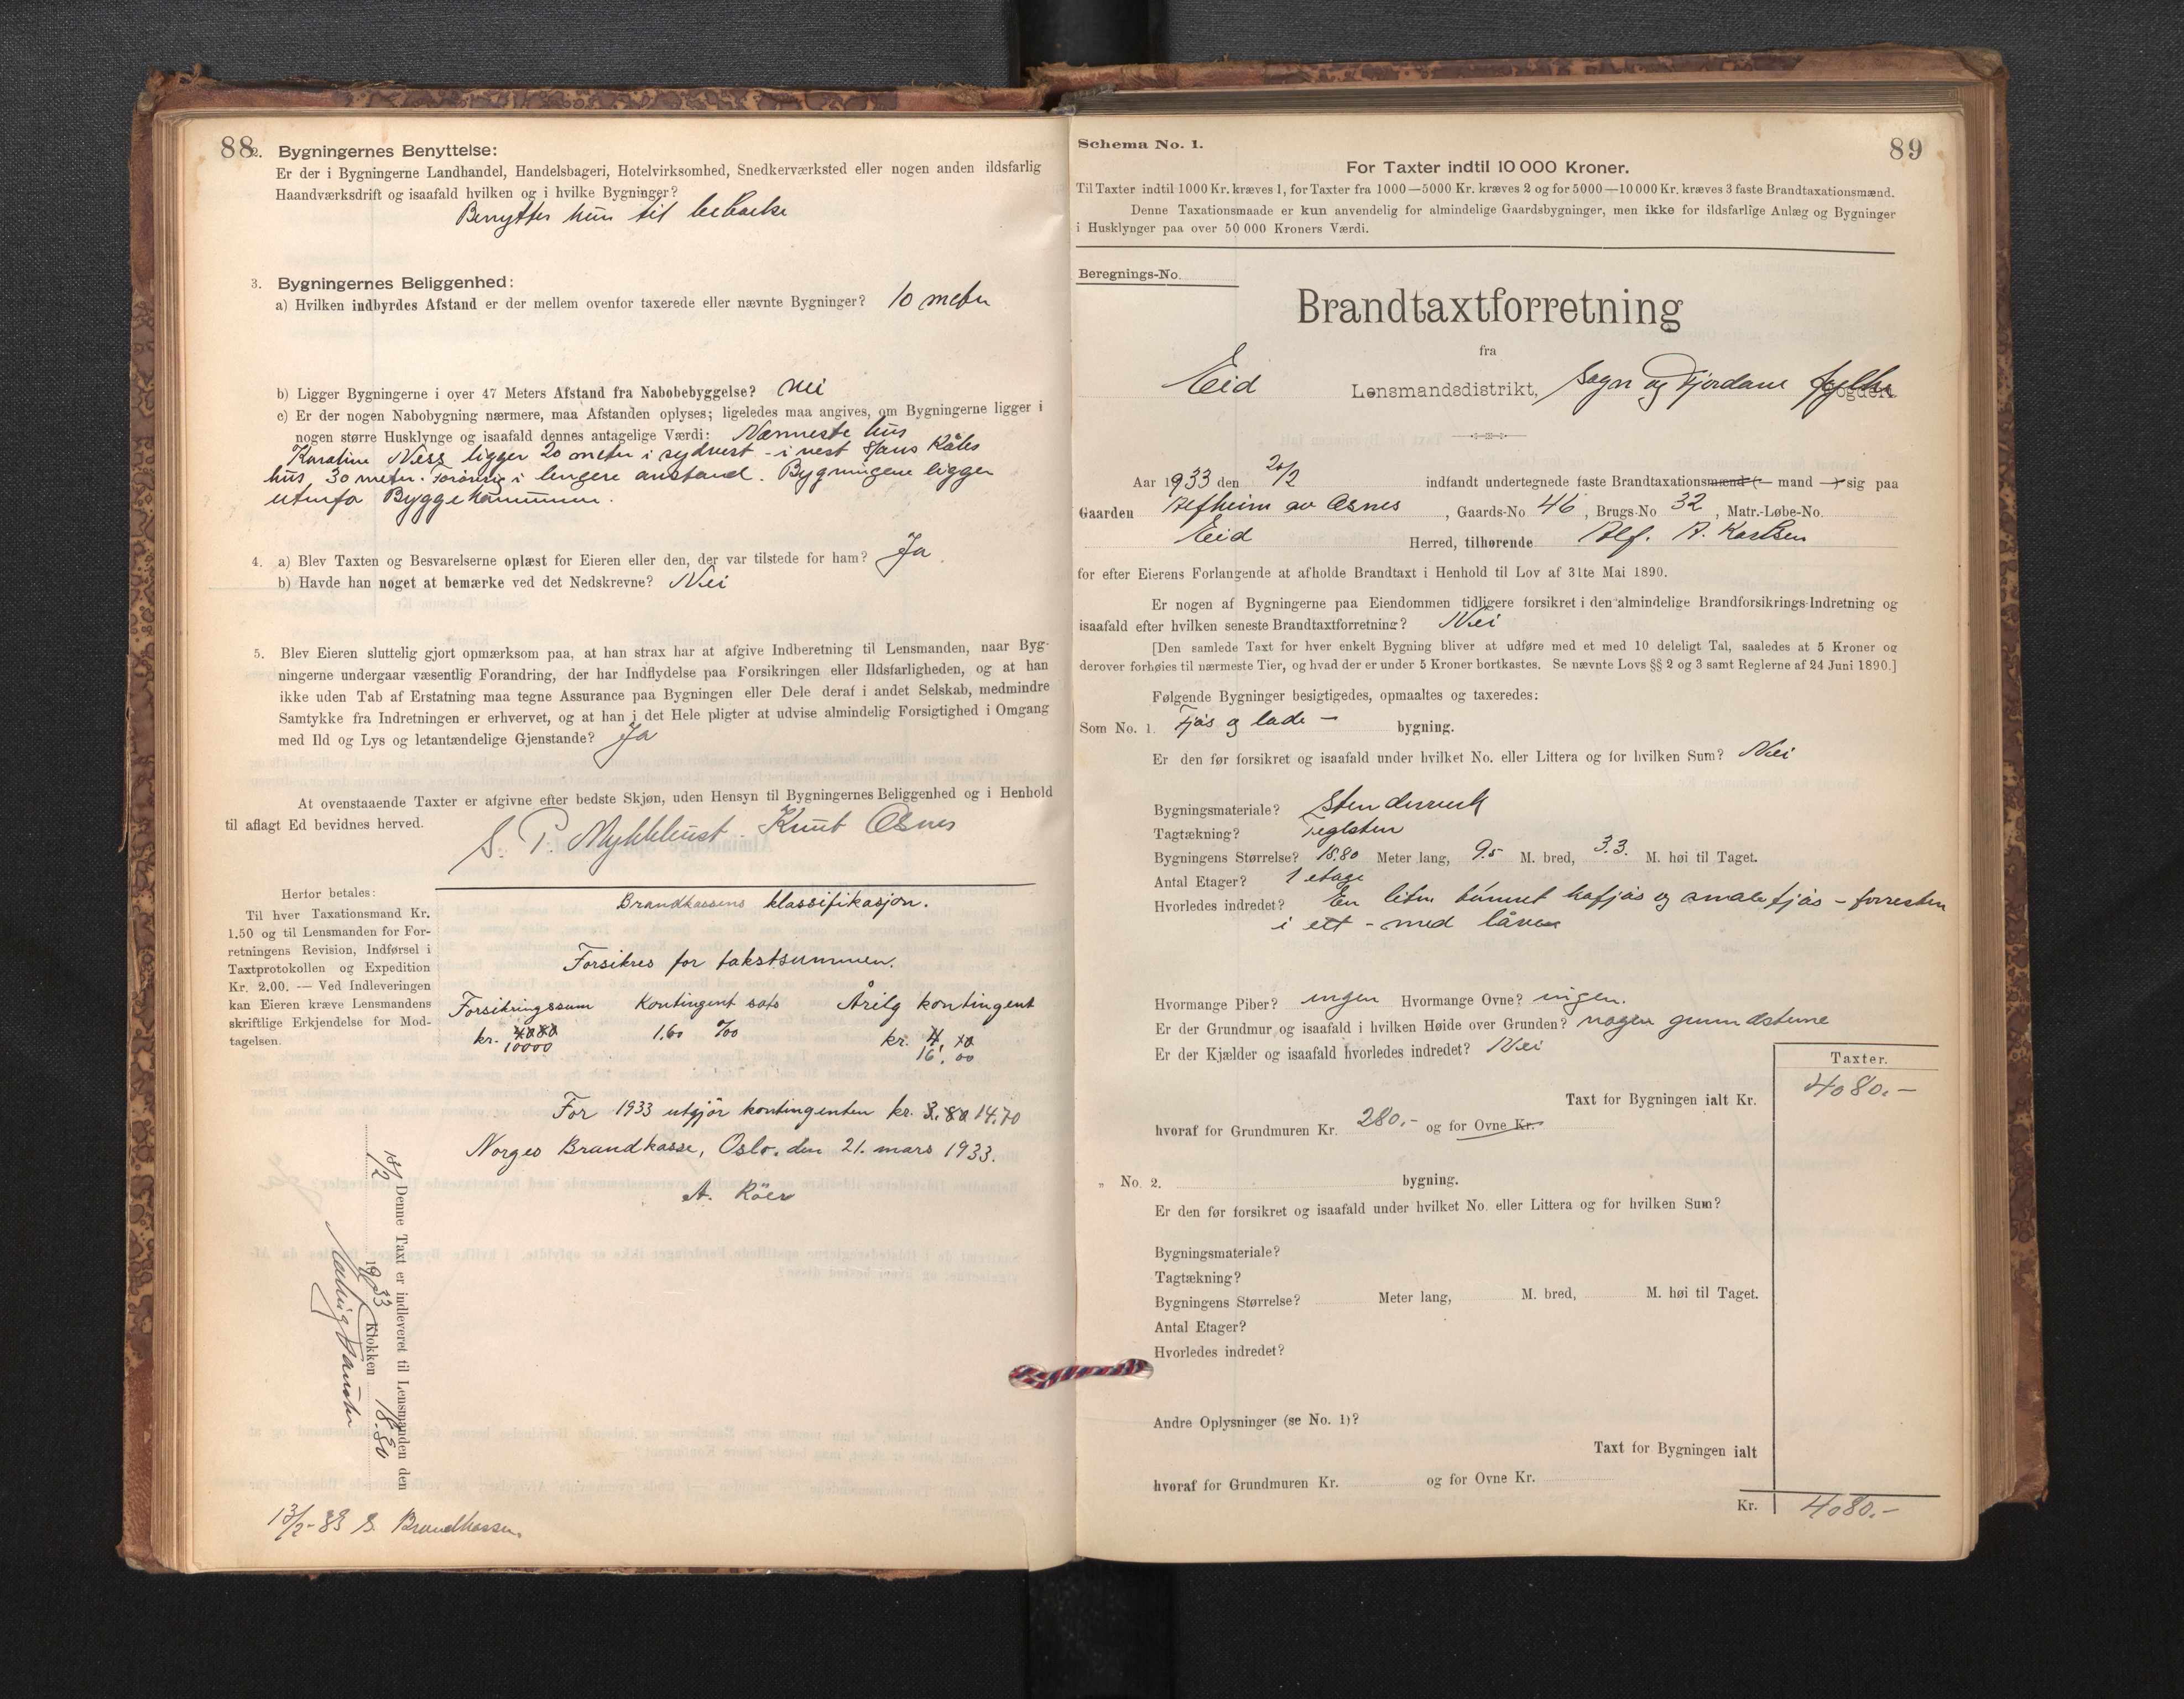 88
2. Bygningernes Benyttelse:
Er der i Bygningerne Landhandel, Handelsbageri, Hotelvirksomhed, Snedkerværksted eller nogen anden ildsfarlig
Haandværksdrift og isaafald hvilken og i hvilke Bygninger?
Benyttes kun til beboelse
3. Bygningernes Beliggenhed:
a) Hvilken indbyrdes Afstand er der mellem ovenfor taxerede eller nævnte Bygninger? 10 meter
b) Ligger Bygningerne i over 47 Meters Afstand fra Nabobebyggelse? nei
c) Er der nogen Nabobygning nærmere, maa Afstanden oplyses; ligeledes maa angives, om Bygningerne ligger i
nogen større Husklynge og isaafald dennes antagelige Værdi: Nærmeste hus
Karatine Ness ligger 20 meter i sydvest - i vest Hans Kåles
hus 30 meter. Forøvrig i lengere avstand. Bygningene ligger
utenfor Byggekommunen.
4. a) Blev Taxten og Besvarelserne oplæst for Eieren eller den, der var tilstede for ham? Ja.
b) Havde han noget at bemærke ved det Nedskrevne? Nei
5. Blev Eieren sluttelig gjort opmærksom paa, at han strax har at afgive Indberetning til Lensmanden, naar Byg-
ningerne undergaar væsentlig Forandring, der har Indflydelse paa Forsikringen eller Ildsfarligheden, og at han
ikke uden Tab af Erstatning maa tegne Assurance paa Bygningen eller Dele deraf i andet Selskab, medmindre
Samtykke fra Indretningen er erhvervet, og at han i det Hele pligter at udvise almindelig Forsigtighed i Omgang
med Ild og Lys og letantændelige Gjenstande? Ja
At ovenstaaende Taxter er afgivne efter bedste Skjøn, uden Hensyn til Bygningernes Beliggenhed og i Henhold
til aflagt Ed bevidnes herved.
S. P. Myklebust. Knut Osnes
Herfor betales:
Til hver Taxationsmand Kr.
1.50 og til Lensmanden for For-
retningens Revision, Indførsel i
Taxtprotokollen og Expedition
Kr. 2.00. — Ved Indleveringen
kan Eieren kræve Lensmandens
skriftlige Erkjendelse for Mod-
tagelsen.
Brandkassens klassifikasjon.
Forsikres for takstsummen.
Forsikringssum Kontingent sats Årlig kontingent
kr. 4080 1.60 ‰ kr.
10000 16.00
For 1933 utgjør kontingenten kr. 3.80 14.70
Norges Brandkasse, Oslo, den 21. mars 1933.
A. Röer
Denne Taxt er indleveret til Lensmanden den
1933 Klokken 18.30
13/2-33 S. Brandkassen.
89
Schema No. 1.
For Taxter indtil 10 000 Kroner.
Til Taxter indtil 1000 Kr. kræves 1, for Taxter fra 1000—5000 Kr. kræves 2 og for 5000—10 000 Kr. kræves 3 faste Brandtaxationsmænd.
Denne Taxationsmaade er kun anvendelig for almindelige Gaardsbygninger, men ikke for ildsfarlige Anlæg og Bygninger
i Husklynger paa over 50 000 Kroners Værdi.
Beregnings-No.
Brandtaxtforretning
fra
Eid Lensmandsdistrikt, Sogn og Fjordane fylke
Aar 1933 den 20/2 indfandt undertegnede faste Brandtaxationsmænd (— mand —) sig paa
Gaarden Alfheim av Osnes, Gaards-No 46, Brugs-No 32, Matr.-Løbe-No.
Eid Herred, tilhørende Alf. A. Karlsen
for efter Eierens Forlangende at afholde Brandtaxt i Henhold til Lov af 31te Mai 1890.
Er nogen af Bygningerne paa Eiendommen tidligere forsikret i den almindelige Brandforsikrings-Indretning og
isaafald efter hvilken seneste Brandtaxtforretning? Nei
[Den samlede Taxt for hver enkelt Bygning bliver at udføre med et med 10 deleligt Tal, saaledes at 5 Kroner og
derover forhøies til nærmeste Tier, og hvad der er under 5 Kroner bortkastes. Se nævnte Lovs §§ 2 og 3 samt Reglerne af 24 Juni 1890.]
Følgende Bygninger besigtigedes, opmaaltes og taxeredes:
Som No. 1. Fjøs og lade - bygning.
Er den før forsikret og isaafald under hvilket No. eller Littera og for hvilken Sum? Nei
Bygningsmateriale? Stenderverk
Tagtækning? Teglsten
Bygningens Størrelse? 15.80 Meter lang, 9.5 M. bred, 3.3. M. høi til Taget.
Antal Etager? 1 etage
Hvorledes indredet? En liten tømret kufjøs og smalefjøs - forresten
i ett - med låven
Hvormange Piber? ingen Hvormange Ovne? ingen.
Er der Grundmur og isaafald i hvilken Høide over Grunden? nogen grundstene
Er der Kjælder og isaafald hvorledes indredet? Nei
Taxter.
Taxt for Bygningen ialt Kr. 4080.-
hvoraf for Grundmuren Kr. 280.- og for Ovne Kr.
„ No. 2. bygning.
Er den før forsikret og isaafald under hvilket No. eller Littera og for hvilken Sum?
Bygningsmateriale?
Tagtækning?
Bygningens Størrelse? Meter lang, M. bred, M. høi til Taget.
Antal Etager?
Hvorledes indredet?
Andre Oplysninger (se No. 1)?
Taxt for Bygningen ialt
hvoraf for Grundmuren Kr. og for Ovne Kr.
Kr. 4080.-